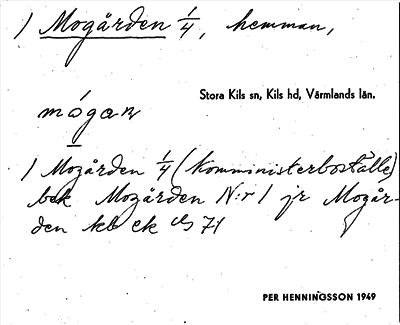 1 Mogården 1/4, hemman,
Stora Kils sn, Kils hd, Värmlands län.
mógaɴ
I
1 Mogården 1/4 (Komministerboställe)
bek Mogården N:r 1 jr Mogår-
den kb ek 71
PER HENNINGSSON 1949